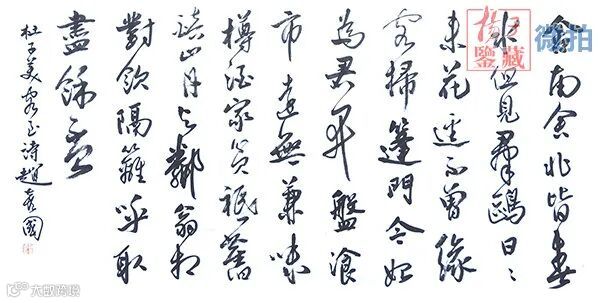 舍南舍北皆春
水但見群鷗日〻
來花逕不曾緣
客掃篷門今始
為君開盤飡
市遠無兼味
樽酒家貧祇舊
醅肯与鄰翁相
對飲隔籬呼取
盡餘杯
杜子美客至詩趙國
鑒藏
微拍
大数跨境